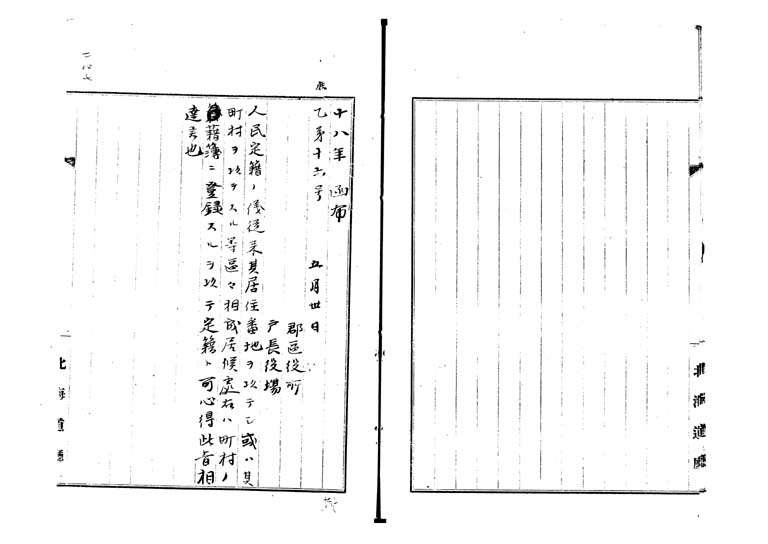 北海道廳
十八年 函布
乙第十六号 五月卅日
郡區役所
戸長役場
人民定籍ノ儀従来其居住番地ヲ以テシ或ハ其
町村ヲ以テスル等區々相成居候處右ハ町村ノ
籍簿ニ登録スルヲ以テ定籍ト可心得此旨相
達候也
北海道廳